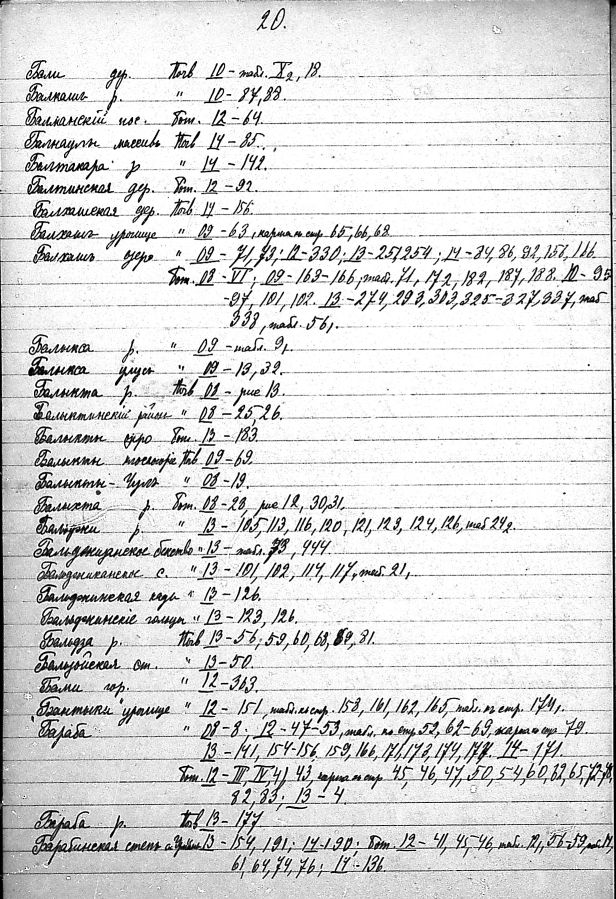 20.
Бали дер. Почв 10 – табл. X2, 18.
Балкашъ р. " 10 – 87, 88.
Балканскій пос. Бот. 12 – 64.
массивъ Почв 14 – 85.
Балтакара р " 14 – 142.
Балтинская дер. Бот. 12 – 92.
Балхашская дер. Почв 14 – 156.
Балхашъ урочище " 09 – 63, карта къ стр 65, 66, 68.
Балхашъ озеро " 09 – 71, 73; 12 – 330; 13 – 251, 254; 14 – 84, 86, 92, 156, 166.
Бот. 08 – VI; 09 – 163 – 166, табл. 71, 172, 182, 187, 188. 10 – 95
– 97, 101, 102. 13 – 274, 293, 303, 325 – 327, 337, таб
338, табл. 561.
Балыкса р. " 09 – табл. 91.
Балыкса улусъ " 09 – 13, 32.
Балыкта р. Почв 08 – рис 13.
Балыктинскій районъ " 08 – 25, 26.
Балыкты озеро Бот. 13 – 183.
Балыкты плоскогоріе Почв 09 – 69.
Балыкты - Чулъ " 08 – 19.
Балыхта р. Бот. 08 – 28, рис 12, 30, 31.
р. " 13 – 105, 113, 116, 120, 121, 123, 124, 126, таб 242.
Бальджуанское бекство " 13 – табл. 73, 444.
Бальджиканское с. " 13 – 101, 102, 114, 117, таб. 21,
Бальджинская падь " 13 – 126.
Бальджинскіе гольцы " 13 – 123, 126.
Бальдза р. Почв 13 – 56, 59, 60, 63, 69, 81.
Бальзойская ст. " 13 – 50.
Бами гор. " 12 – 363.
"Бантыки" урочище " 12 – 151, табл. къ стр. 158, 161, 162, 165, табл. къ стр. 1741.
Бараба " 08 – 8. 12 – 47 – 53, табл. къ стр 52, 62 – 69, карта къ стр 79
13 – 141, 154 – 156, 159, 166, 171, 173, 174, 177. 14 – 171.
Бот. 12 – III, IV, 41, 43, карта къ стр 45, 46, 47, 50, 54, 60, 62, 65, 72
82, 83, 13 – 4.
Бараба р. Почв 13 – 177
Барабинская степь 13 – 154, 191; 14 – 190; Бот. 12 – 41, 45, 46, табл. 121, 56 – 59,
61, 64, 74, 76; 14 – 136.